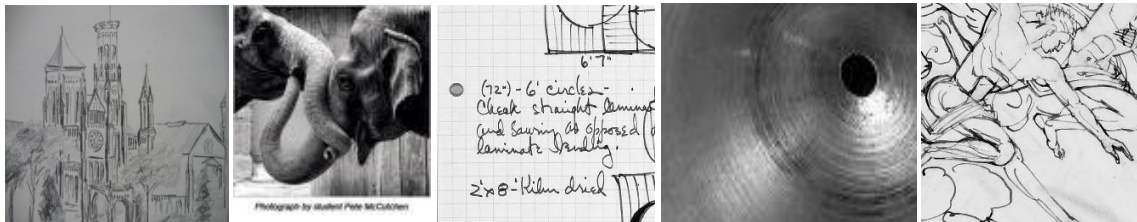 Photograph by student Pete McCutchen
6'7"
(72") - 6' circles -
Check straight laminat
and sawing as opposed
laminate bending.
2'x8'-Kiln dried